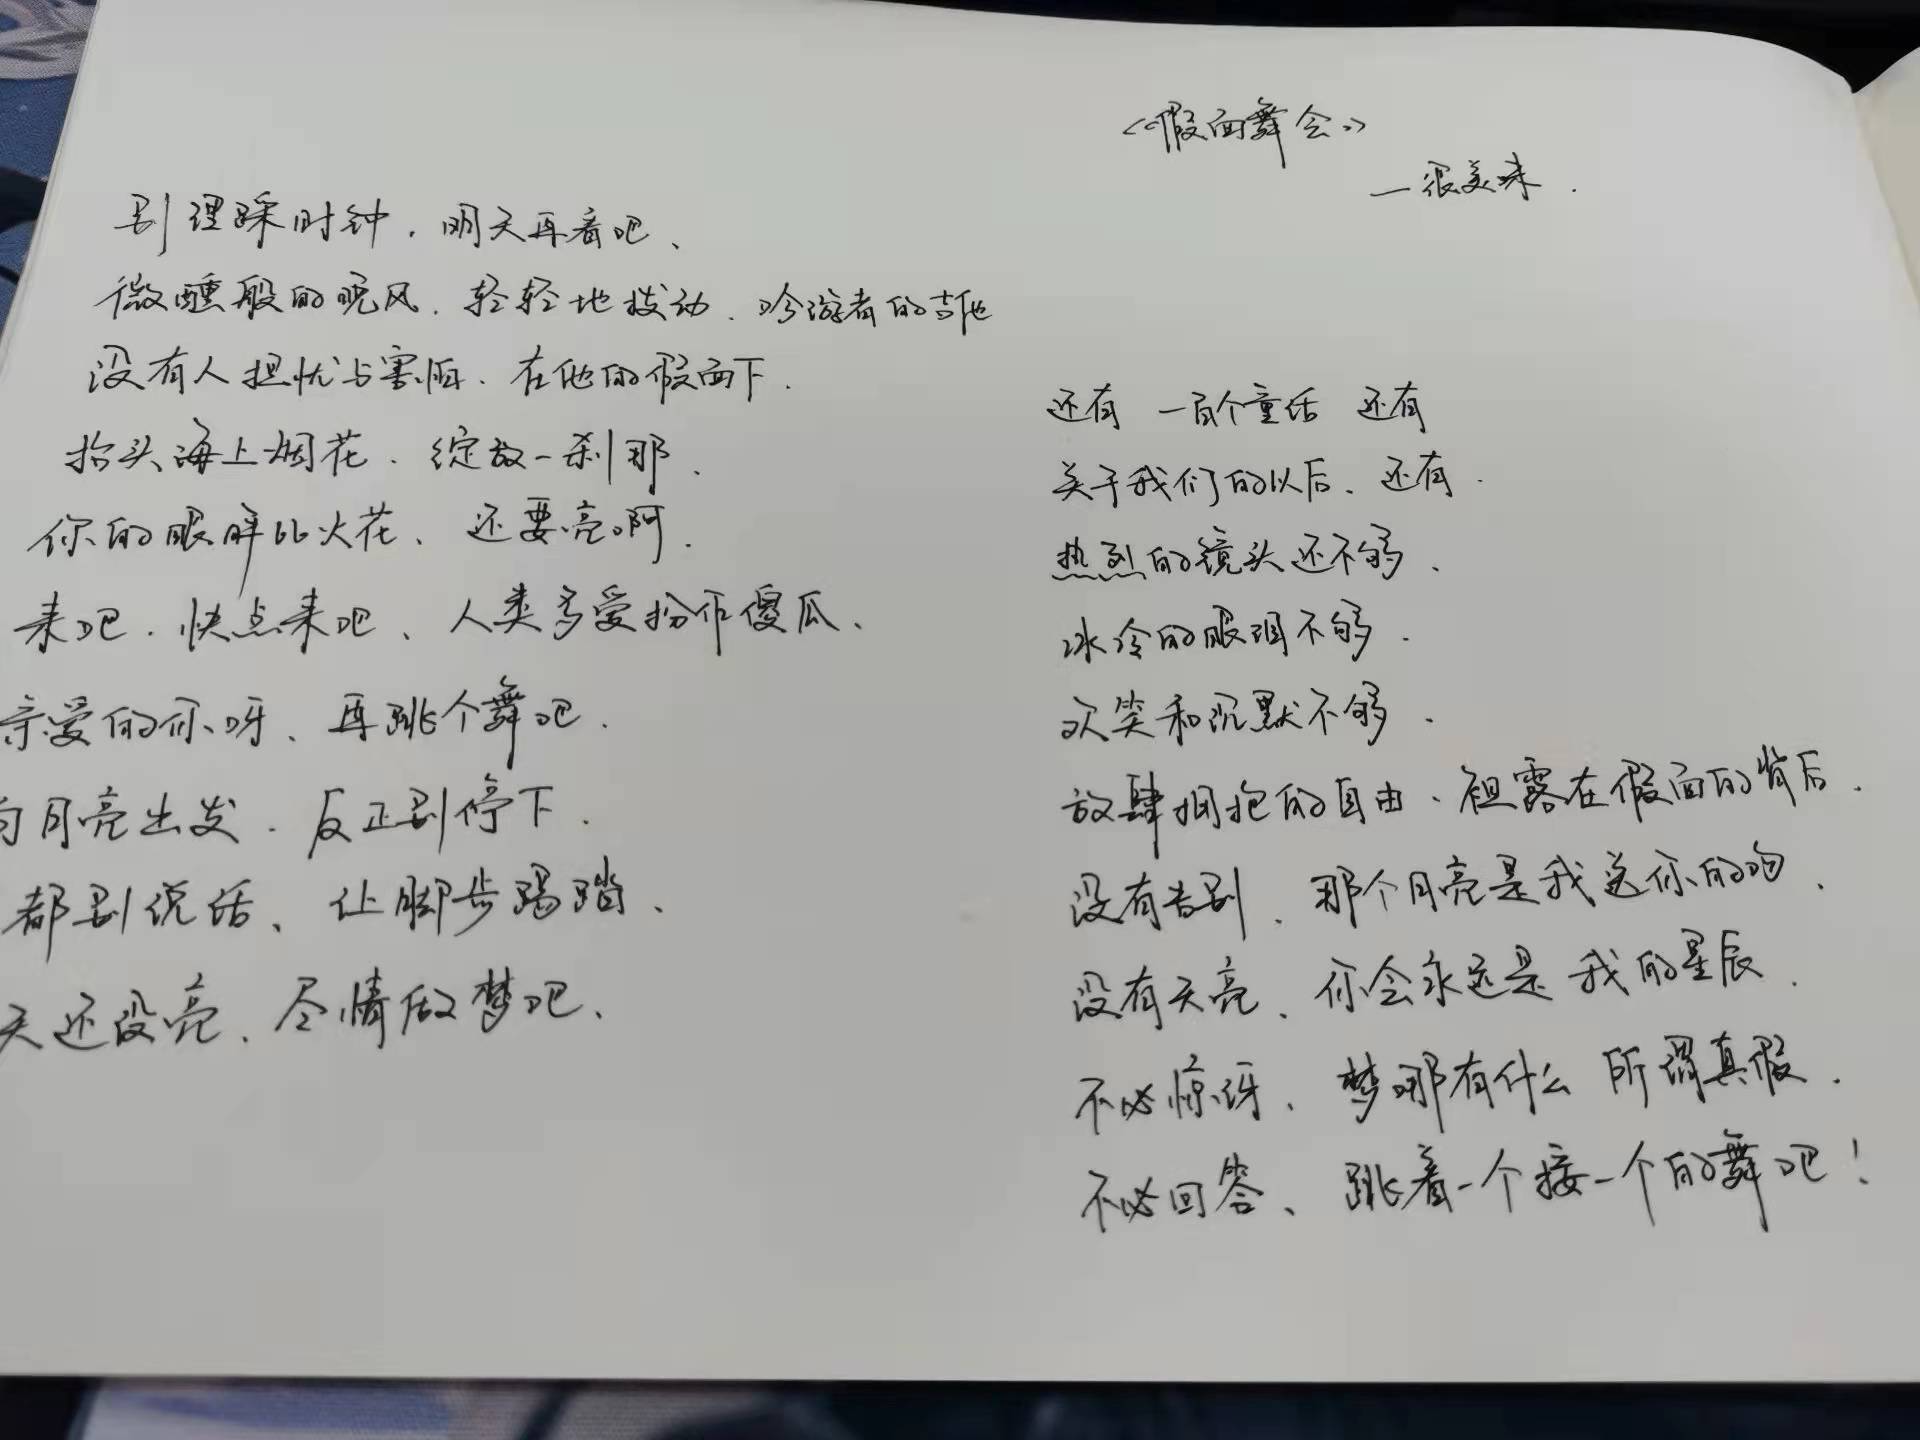 《假面舞会》
一很美味.
别理踩时钟,明天再看吧、
微醺般的晚风.轻轻地拨动.吟游者的吉他
没有人担忧与害怕.在他的假面下.
抬头海上烟花.绽放一刹那.
你的眼眸比火花、还要亮啊.
来吧.快点来吧、人类多爱扮作傻瓜、
亲爱的你呀、再跳个舞吧.
向月亮出发.反正别停下.
都别说话、让脚步踢踏、
天还没亮.尽情做梦吧、
还有 一百个童话 还有
关于我们的以后、还有.
热烈的镜头还不够.
冰冷的眼泪不够.
欢笑和沉默不够.
放肆拥抱的自由.袒露在假面的背后.
没有告别.那个月亮是我送你的吻、
没有天亮、你会永远是我的星辰.
不必惊讶、梦哪有什么 所谓真假.
不必回答、跳着一个接一个的舞吧!